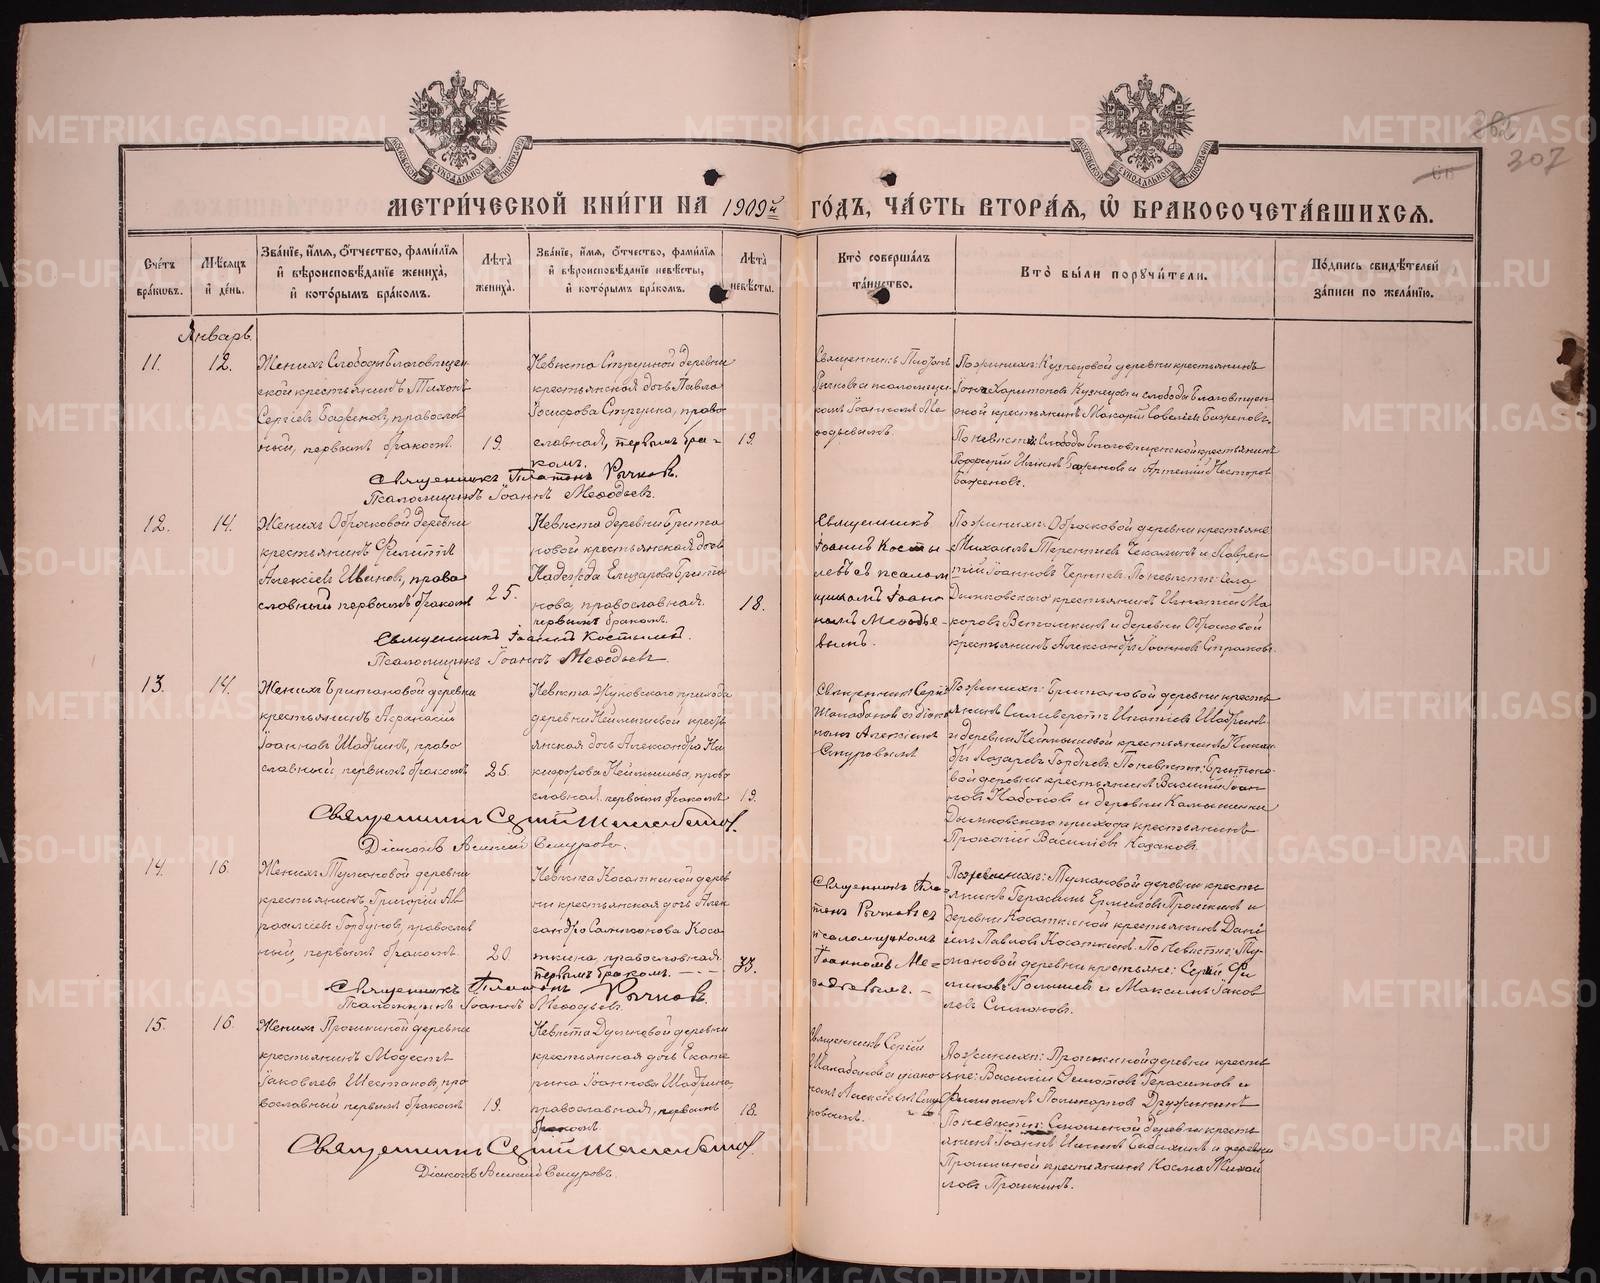 МОСКОВСКОЙ СѴНОДАЛЬНОЙ ТИПОГРАФІИ
МОСКОВСКОЙ СѴНОДАЛЬНОЙ ТИПОГРАФІИ
307
МЕТРИ́ЧЕСКОЙ КНИ́ГИ НА 1909й ГО́ДЪ, ЧА́СТЬ ВТОРА́Я, Ѽ БРАКОСОЧЕТА́ВШИХСЯ.
Сче́тъ бра́кωвъ.
Мѣ́сяцъ и҆ де́нь.
Зва́нїе, и҆́мя, ѻ҆́тчество, фами́лїя и҆ вѣроисповѣ́данїе жениха̀, и҆ кото́рымъ бра́комъ.
Лѣ́та жениха̀.
Зва́нїе, и҆́мя, ѻ҆́тчество, фами́лїя и҆ вѣроисповѣ́данїе невѣ́сты, и҆ кото́рымъ бра́комъ.
Лѣ́та невѣ́сты.
Кто̀ соверша́лъ та́инство.
Кто̀ бы́ли порꙋчи́тели.
По́дпись свидѣ́телей за́писи по жела́нїю.
Январь.
11.
12.
Женихъ Слободы Благовѣщен
ской крестьянинъ Тихонъ
Сергіевъ Баженовъ, православ
ный, первымъ бракомъ.
19.
Невѣста Струиной деревни
крестьянская дочь Павла
Іосифова Струина, право
славная, первымъ бра-
комъ.
19.
Священникъ Платонъ
Рычковъ и псаломщи
комъ Іоанномъ Ме
ѳодьевымъ.
По женихѣ: Кузнецовой деревни крестьянинъ
Харитоновъ Кузнецовъ и слободы Благовѣщен
ской крестьянинъ Макарій Савельевъ Баженовъ.
По невѣстѣ: Слободы Благовѣщенской крестьяни
Баженовъ и Артемій Несторовъ
Баженовъ.
Священникъ Платонъ Рычковъ.
Псаломщикъ Іоаннъ Меѳодьевъ.
12.
14.
Женихъ Обросковой деревни
крестьянинъ Филиппъ
Алексіевъ Ивановъ, право
славный первымъ бракомъ
25.
Невѣста деревни Брита
новой крестьянская дочь
Надежда Елизарова Брита
нова, православная.
первымъ бракомъ.
18.
Священникъ
Іоаннъ Косты
левъ съ псалом
щикомъ Іоан
номъ Меѳодье-
вымъ.
По женихѣ: Обросковой деревни крестьяне
Михаилъ Терентіевъ Чекалинъ и Лаврен
тій Іоанновъ По невѣстѣ: Села
Дымковскаго крестьянинъ Игнатій Ма
каровъ и деревни Обросковой
крестьянинъ Александръ Іоанновъ
Священникъ Іоаннъ Костылевъ.
Псаломщикъ Іоаннъ Меѳодьевъ.
13.
14.
Женихъ Британовой деревни
крестьянинъ Аѳанасій
Іоанновъ Шадринъ, право
славный, первымъ бракомъ
25.
Невѣста Жуковскаго прихода
деревни Неймышевой кресть
янская дочь Александра Ни
кифорова Неймышева, право
славная первымъ бракомъ
19.
Священникъ Сергій
Шалабановъ съ діако
номъ Алексіемъ
Смуровымъ
По женихѣ: Британовой деревни кресть
янинъ Силиверстъ Игнатіевъ Шадринъ
и деревни Неймышевой крестьянинъ Никан
дръ Лазаревъ Гордѣевъ. По невѣстѣ: Британо
вой деревни крестьянинъ Василій Іоан
новъ Набоковъ и деревни Камышенки
Дымковскаго прихода крестьянинъ
Прокопій Василіевъ Казаковъ.
Священникъ Сергій Шалабановъ.
Діаконъ Алексій Смуровъ.
14.
16.
Женихъ Тумановой деревни
крестьянинъ Григорій Ав
рамовъ Горбуновъ, православ
ный, первымъ бракомъ.
20.
Невѣста Косаткиной дерев
ни крестьянская дочь Алек
сандра Сампсонова Коса
ткина, православная.
первымъ бракомъ.
Священникъ Пла-
тонъ Рычковъ съ
псаломщикомъ
Іоанномъ Ме-
ѳодьевымъ.
По женихѣ: Тумановой деревни кресть
янинъ Герасимъ Ермиловъ Пронькинъ и
деревни Косаткиной крестьянинъ Дані
илъ Павловъ Косаткинъ. По невѣстѣ: Ту
мановой деревни крестьяне: Сергій Фи
липовъ и Максимъ Іаков
левъ Симоновъ.
Священникъ Платонъ Рычковъ.
Псаломщикъ Іоаннъ Меѳодьевъ.
15.
16.
Женихъ Пронькиной деревни
крестьянинъ Модестъ
Іаковлевъ Шестаковъ, пра
вославный первымъ бракомъ
19.
Невѣста деревни
крестьянская дочь Екате
рина Іоаннова Шадрина,
православная, первымъ
бракомъ
18.
Священникъ Сергій
Шалабановъ съ діако
номъ Алексіемъ Сму
ровымъ.
По женихѣ: Пронькиной деревни кресть
яне: Василій Герасимовъ и
Филимонъ Поликарповъ Дружининъ
По невѣстѣ: деревни кресть
янинъ Іоаннъ и деревни
Пронькиной крестьянинъ Косма Михай
ловъ Пронькинъ.
Священникъ Сергій Шалабановъ.
Діаконъ Алексій Смуровъ.
METRIKI.GASO-URAL.RU